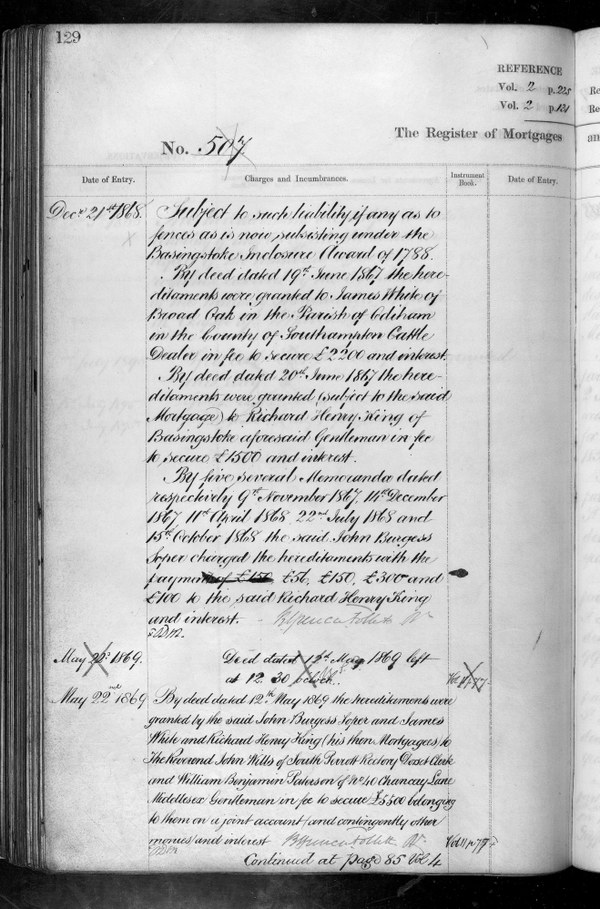 129
REFERENCE
Vol. 2 p. 225
Vol. 2 p. 121
The Register of Mortgages
No. 507
Date of Entry.
Charges and Incumbrances.
Instrument Book.
Date of Entry.
Decr 21st 1868.
Subject to such liability if any as to
fences as is now subsisting under the
Basingstoke Inclosure Award of 1788.
By deed dated 19th June 1867 the here-
ditaments were granted to James White of
Broad Oak in the Parish of Odiham
in the County of Southampton Cattle
Dealer in fee to secure £2200 and interest.
By deed dated 20th June 1867 the here-
ditaments were granted (subject to the said
Mortgage) to Richard Henry King of
Basingstoke aforesaid Gentleman in fee
to secure £1500 and interest.
By five several Memoranda dated
respectively 9th November 1867, 14th December
1867 11th April 1868, 22nd July 1868 and
15th October 1868 the said John Burgess
Soper charged the hereditaments with the
payment of £150, £56, £150, £300 and
£100 to the said Richard Henry King
and interest.
May 22d 1869.
Deed dated 12th May 1869 left
at 12.30 o'clock.
May 22nd 1869
By deed dated 12th May 1869 the hereditaments were
granted by the said John Burgess Soper and James
White and Richard Henry King (his then Mortgagees) to
The Reverend John Wills of South Perrott Rectory Dorset Clerk
and William Benjamin Paterson of No 40 Chancery Lane
Middlesex Gentleman in fee to secure £5500 belonging
to them on a joint account and contingently other
monies and interest
Vol 11 p 77
Continued at page 85 Vol 4